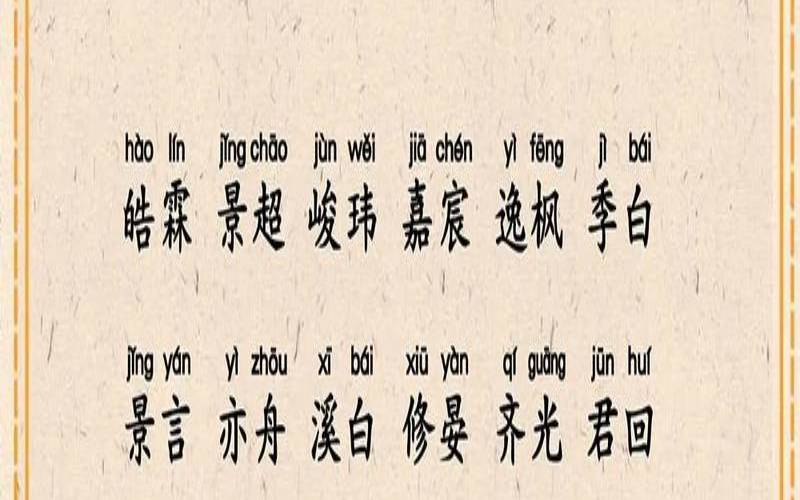 hào lín jǐng chāo jùn wěi jiā chén yì fēng jì bái
皓霖 景超 峻玮 嘉宸 逸枫 季白
jǐng yán yì zhōu xī bái xiū yàn qí guāng jūn huí
景言 亦舟 溪白 修晏 齐光 君回